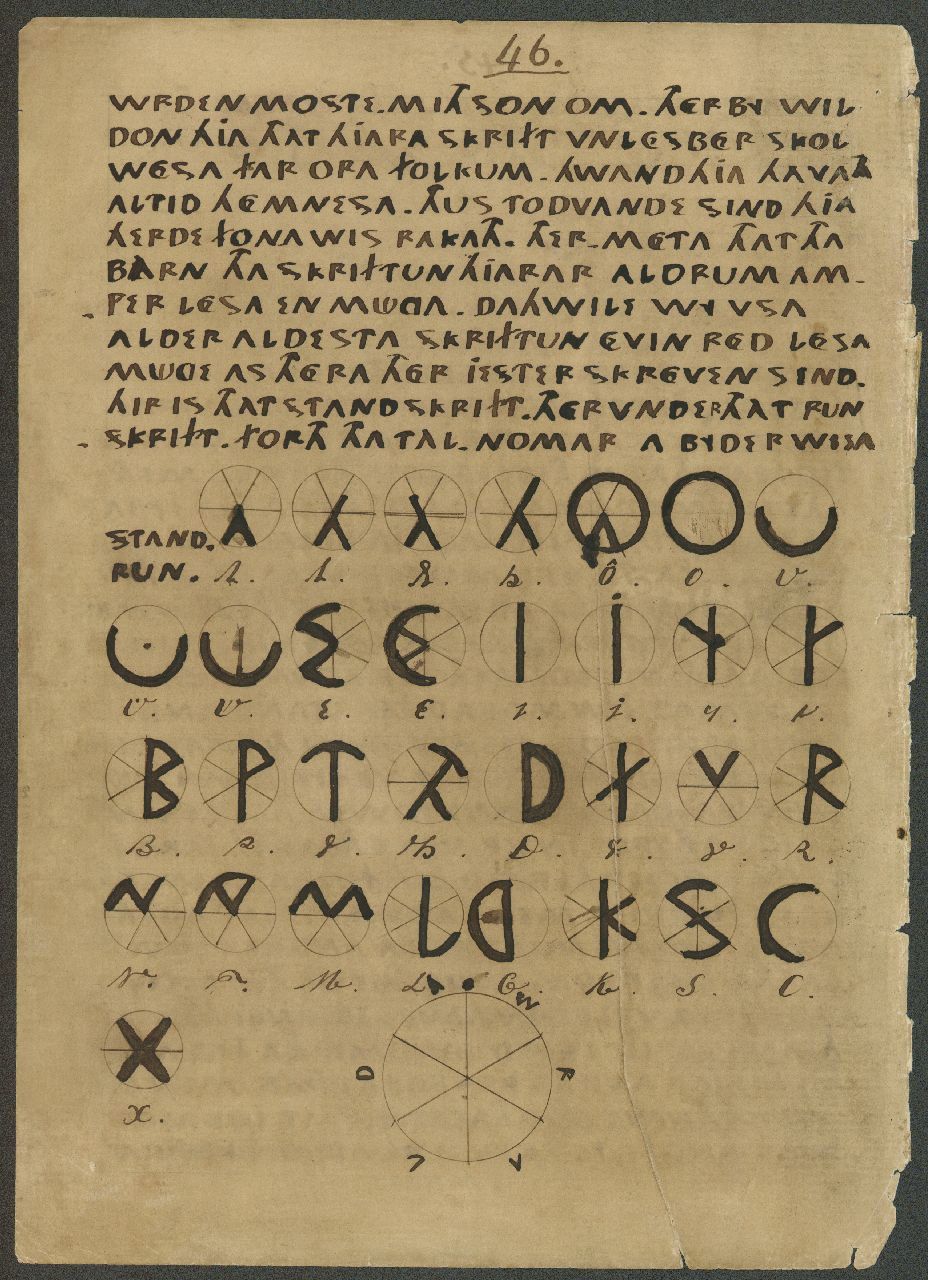 46.
WRDEN MOSTE. MITH SON OM. THERBY WIL
DON HJA THAT HJARA SKRIFT VNLESBER SKOL
WESA FAR ORA FOLKUM. HWAND HJA HAVATH
ALTID HEMNESA. THUS TODVANDE SIND HJA
HERDE FONA WIS RAKATH. THER-META THAT THA
BARN THA SKRIFTUN HJARAR ALDRUM AM-
PER LESA EN MUGA. DAHWILE WY VSA
ALDER ALDESTA SKRIFTUN EVIN RED LESA
MUGE AS THERA THER JESTER SKREVEN SIND.
HIR IS THAT STANDSKRIFT. THER VNDER THAT RUN
SKRIFT. FORTH THA TAL-NOMAR A BYDER WISA
STAND.
RUN. Ô. O. U.
E. I. J. Y.
B P T TH D F V R
B. P. T. Th. D. F. V. R.
N M L G K S C
N. M. L. G. K. S. C.
X
X.